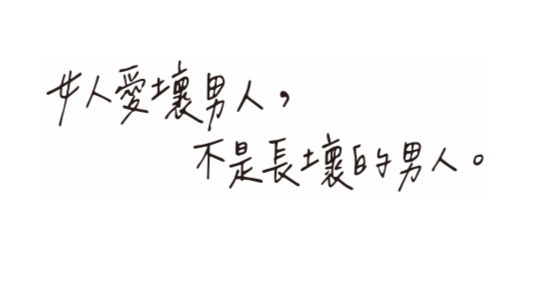 女人愛壞男人，
不是長壞的男人。